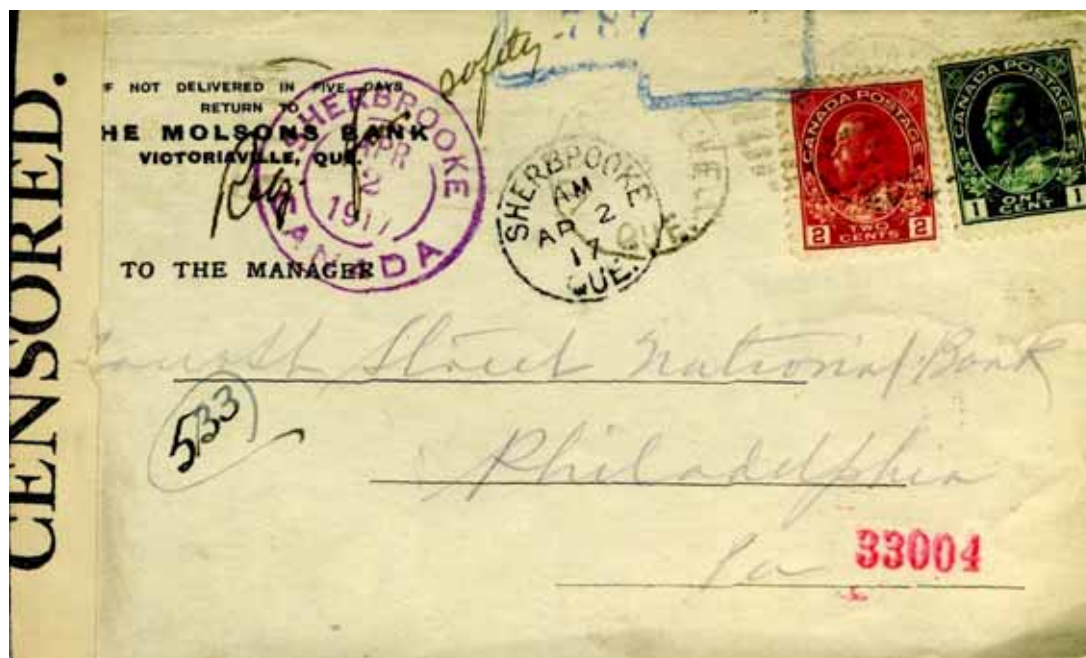 CENSORED.
safety
787
F NOT DELIVERED IN FIVE DAYS
RETURN TO
HE MOLSONS BANK
VICTORIAVILLE, QUE.
TO THE MANAGER
SHERBROOKE
APR
2
1917
CANADA
SHERBROOKE
AM
AP 2
17
QUE.
QUE.
CANADA POSTAGE
2 TWO CENTS 2
CANADA POSTAGE
1 ONE CENT 1
Fourth Street National Bank
533
Philadelphia
Pa
33004